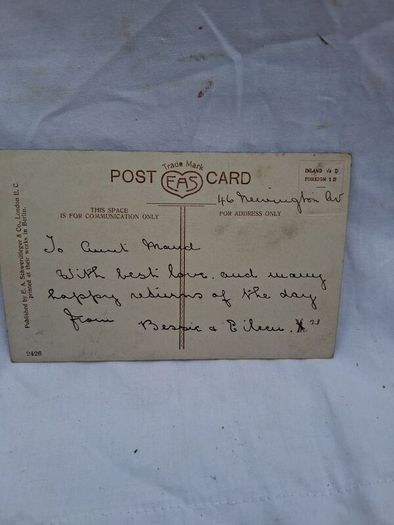 Trade Mark
POST EAS CARD
INLAND ½ D
FOREIGN 1 D
46 Newington Av
THIS SPACE
IS FOR COMMUNICATION ONLY
FOR ADDRESS ONLY
To Aunt Maud
With best love, and many
happy returns of the day
from Bessie & Eileen.
Published by E. A. Schwerdtfeger & Co., London E. C.
printed at their works in Berlin.
2426